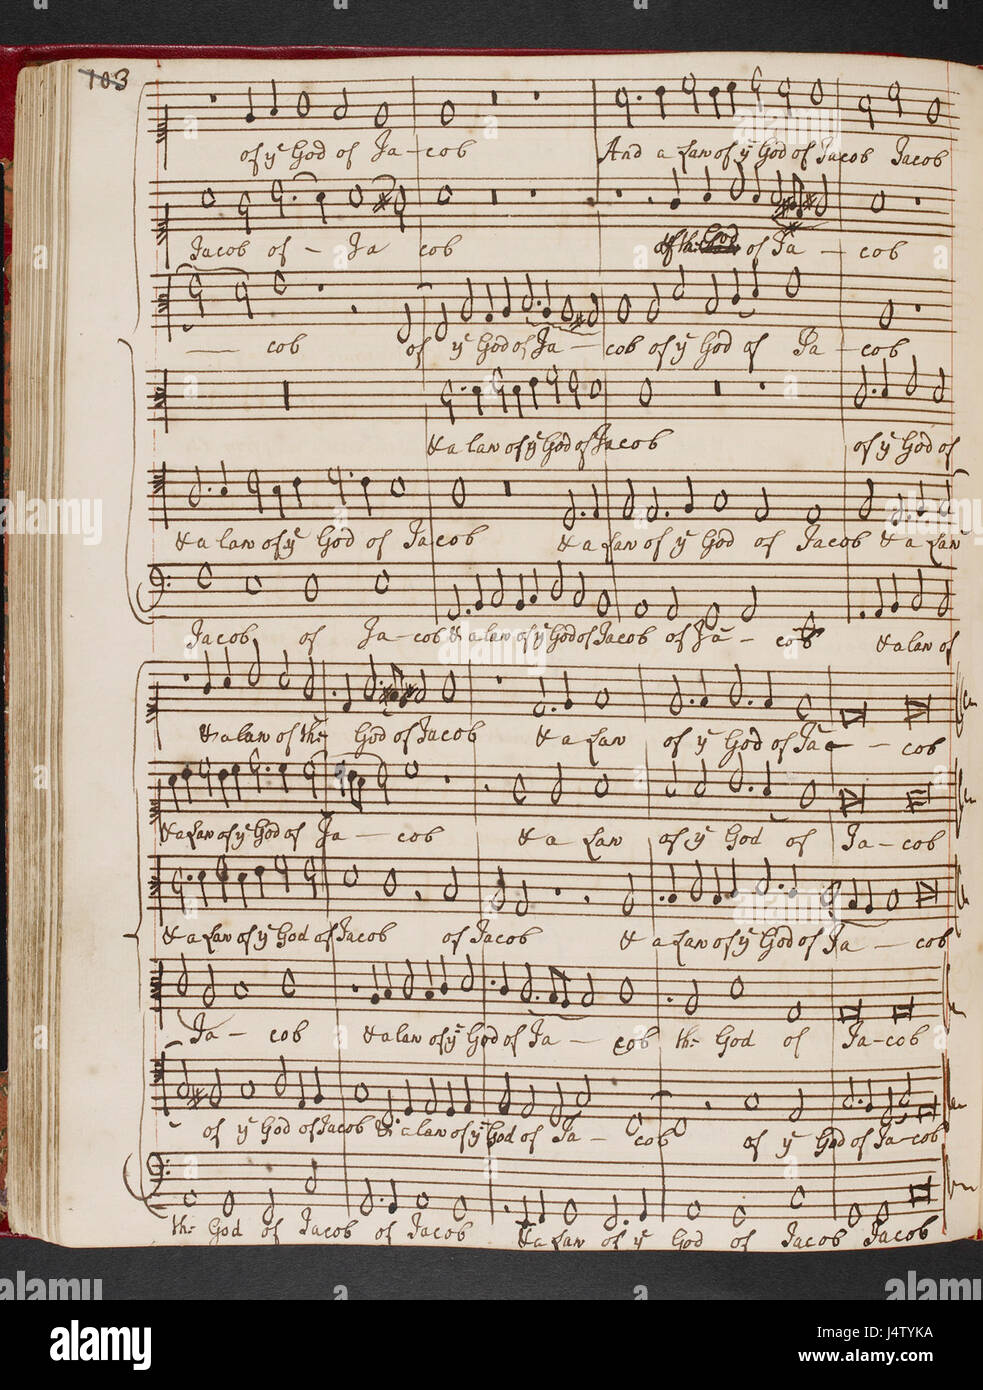 103
of yͤ God of Ja-cob And a Law of yͤ God of Jacob Jacob
Jacob of - Ja cob of Ja - cob
cob of yͤ God of Ja - cob of yͤ God of Ja - cob
& a law of yͤ God of Jacob of yͤ God of
& a law of yͤ God of Jacob & a Law of yͤ God of Jacob & a Law
Jacob of Ja-cob & a law of yͤ God of Jacob of Ja - cob & a law of
& a law of the God of Jacob & a Law of yͤ God of Ja - cob
& a Law of yͤ God of Ja - cob & a Law of yͤ God of Ja - cob
& a Law of yͤ God of Jacob of Jacob & a Law of yͤ God of Ja - cob
Ja - cob & a law of yͤ God of Ja - cob the God of Ja-cob
of yͤ God of Jacob & a law of yͤ God of Ja - cob of yͤ God of Ja-cob
the God of Jacob of Jacob & a Law of yͤ God of Jacob Jacob
alamy
Image ID: J4TYKA
www.alamy.com